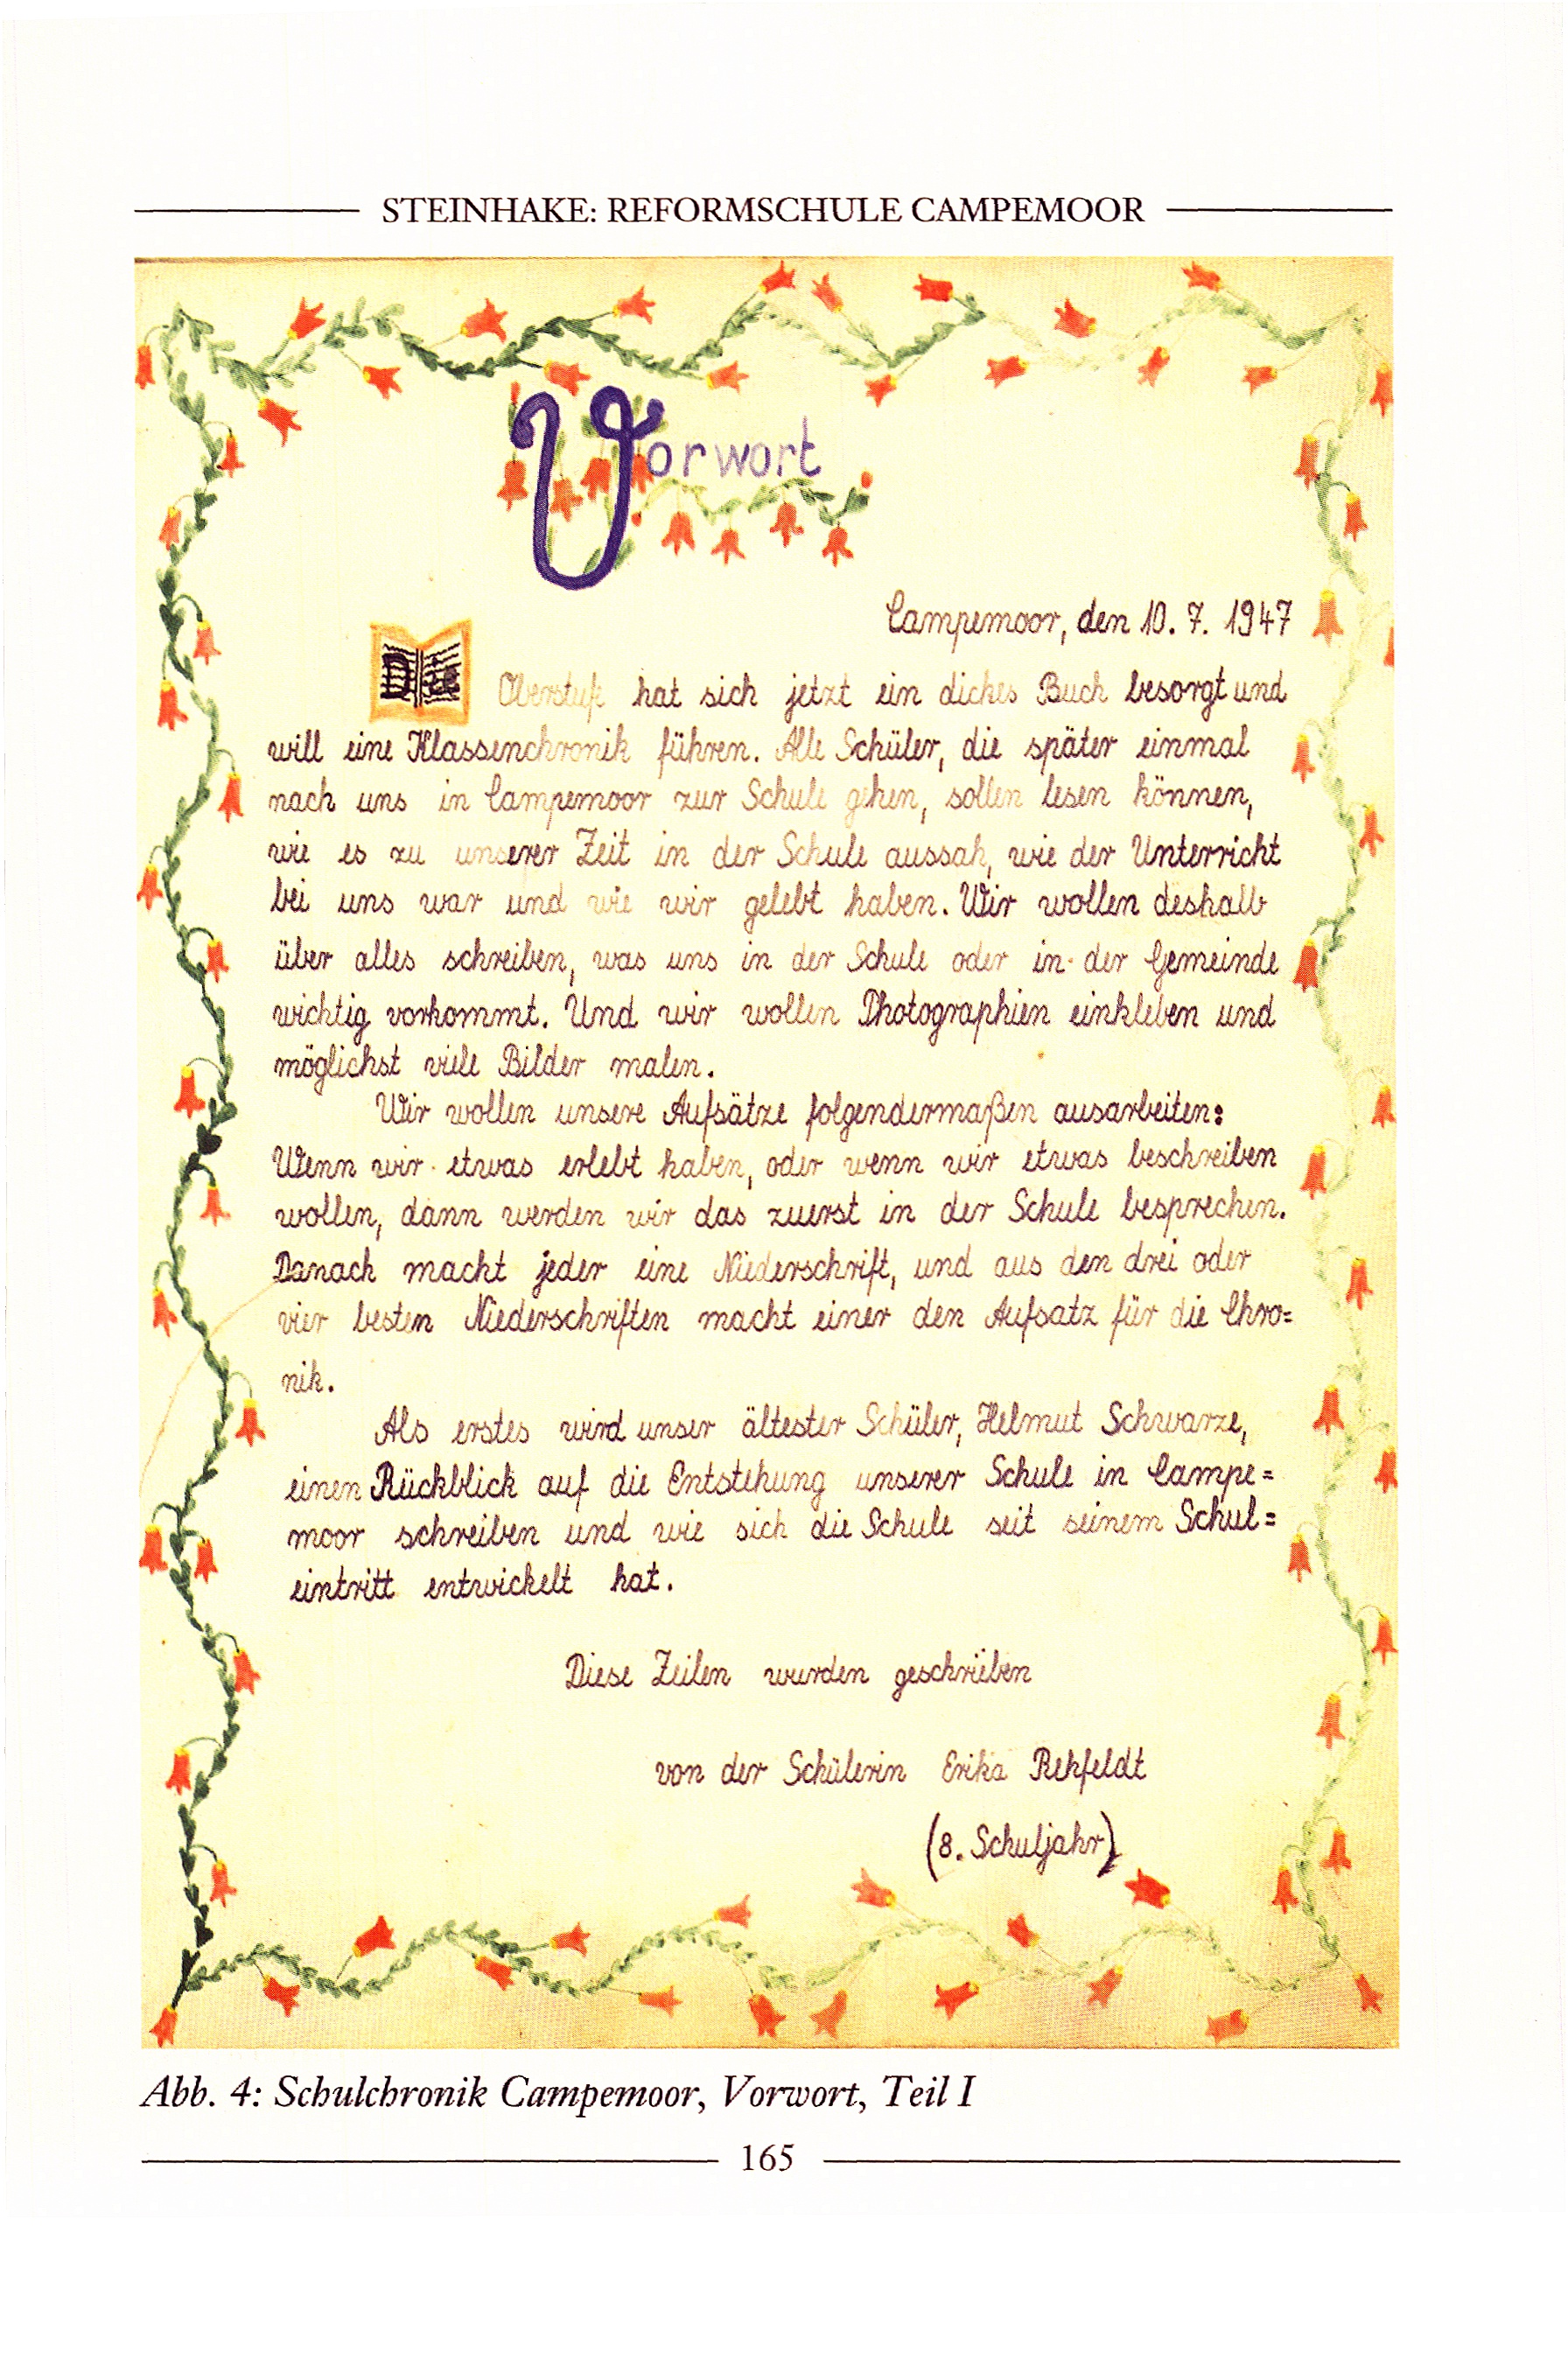 STEINHAKE: REFORMSCHULE CAMPEMOOR
Vorwort
Campemoor, den 10. 7. 1947
Die Oberstufe hat sich jetzt ein dickes Buch besorgt und
will eine Klassenchronik führen. Alle Schüler, die später einmal
nach uns in Campemoor zur Schule gehen, sollen lesen können,
wie es zu unserer Zeit in der Schule aussah, wie der Unterricht
bei uns war und wie wir gelebt haben. Wir wollen deshalb
über alles schreiben, was uns in der Schule oder in der Gemeinde
wichtig vorkommt. Und wir wollen Photographien einkleben und
möglichst viele Bilder malen.
Wir wollen unsere Aufsätze folgendermaßen ausarbeiten:
Wenn wir etwas erlebt haben, oder wenn wir etwas beschreiben
wollen, dann werden wir das zuerst in der Schule besprechen.
Danach macht jeder eine Niederschrift, und aus den drei oder
vier besten Niederschriften macht einer den Aufsatz für die Chro=
nik.
Als erstes wird unser ältester Schüler, Helmut Schwarze,
einen Rückblick auf die Entstehung unserer Schule in Campe=
moor schreiben und wie sich die Schule seit seinem Schul=
eintritt entwickelt hat.
Diese Zeilen wurden geschrieben
von der Schülerin Erika Rehfeldt
(8. Schuljahr)
Abb. 4: Schulchronik Campemoor, Vorwort, Teil I
165